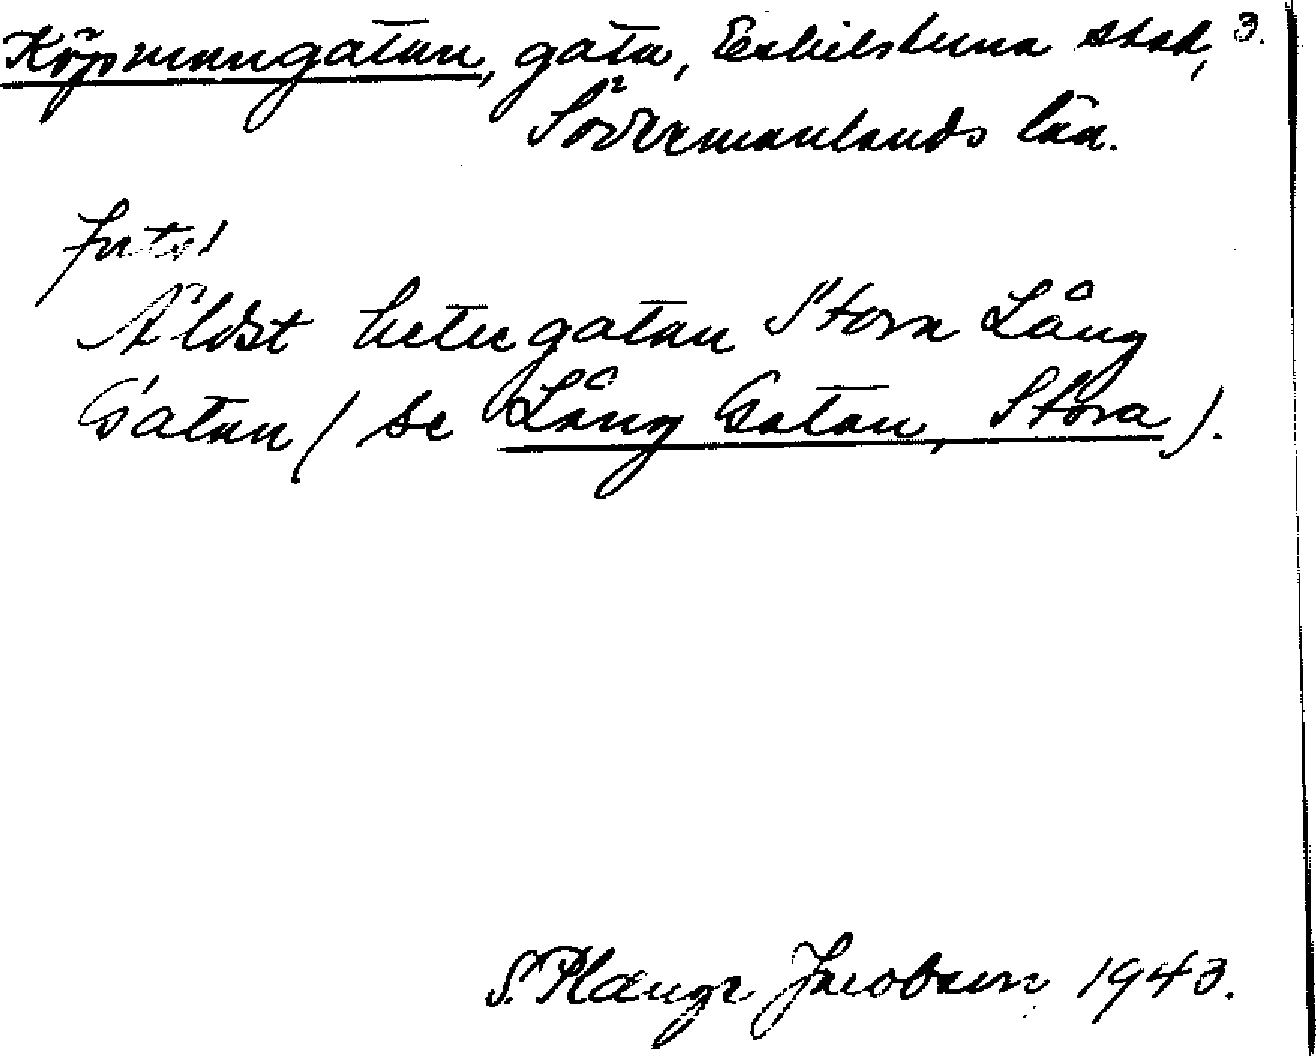 Köpmangatan, gata, Eskilstuna stad, 3.
Södermanlands län.
forts.
Äldst heter gatan Stora Lång
Gatan (se Lång Gatan, Stora).
S. Plange Jacobson 1943.